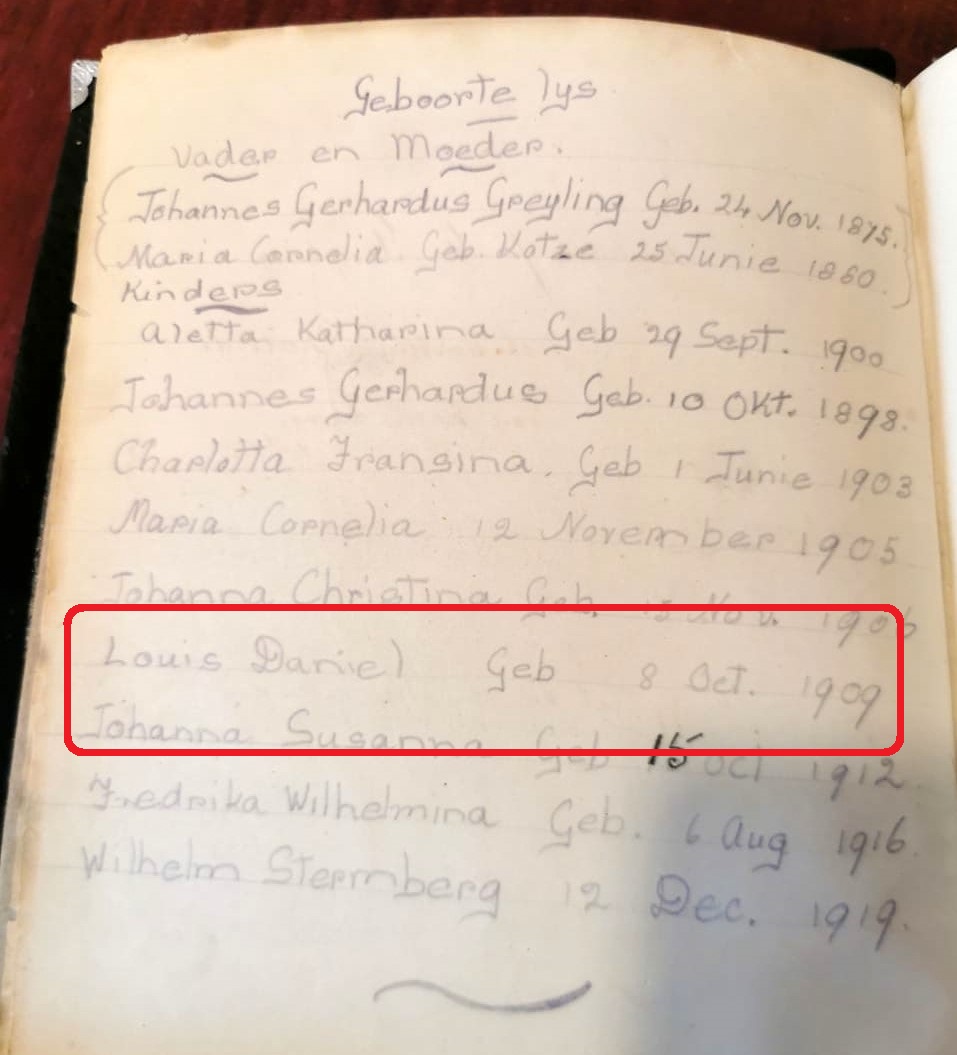 Geboorte lys
Vader en Moeder.
Johannes Gerhardus Greyling Geb. 24 Nov. 1875.
Maria Cornelia Geb. Kotze 25 Junie 1880.
Kinders
Aletta Katharina Geb 29 Sept. 1900
Johannes Gerhardus Geb. 10 Okt. 1898.
Charlotta Fransina. Geb 1 Junie 1903
Maria Cornelia 12 November 1905
Johanna Christina Geb. Nov. 1906
Louis Daniel Geb 8 Oct. 1909
Johanna Susanna Geb 15 Oct 1912.
Fredrika Wilhelmina Geb. 6 Aug 1916.
Wilhelm Stermberg 12 Dec. 1919.